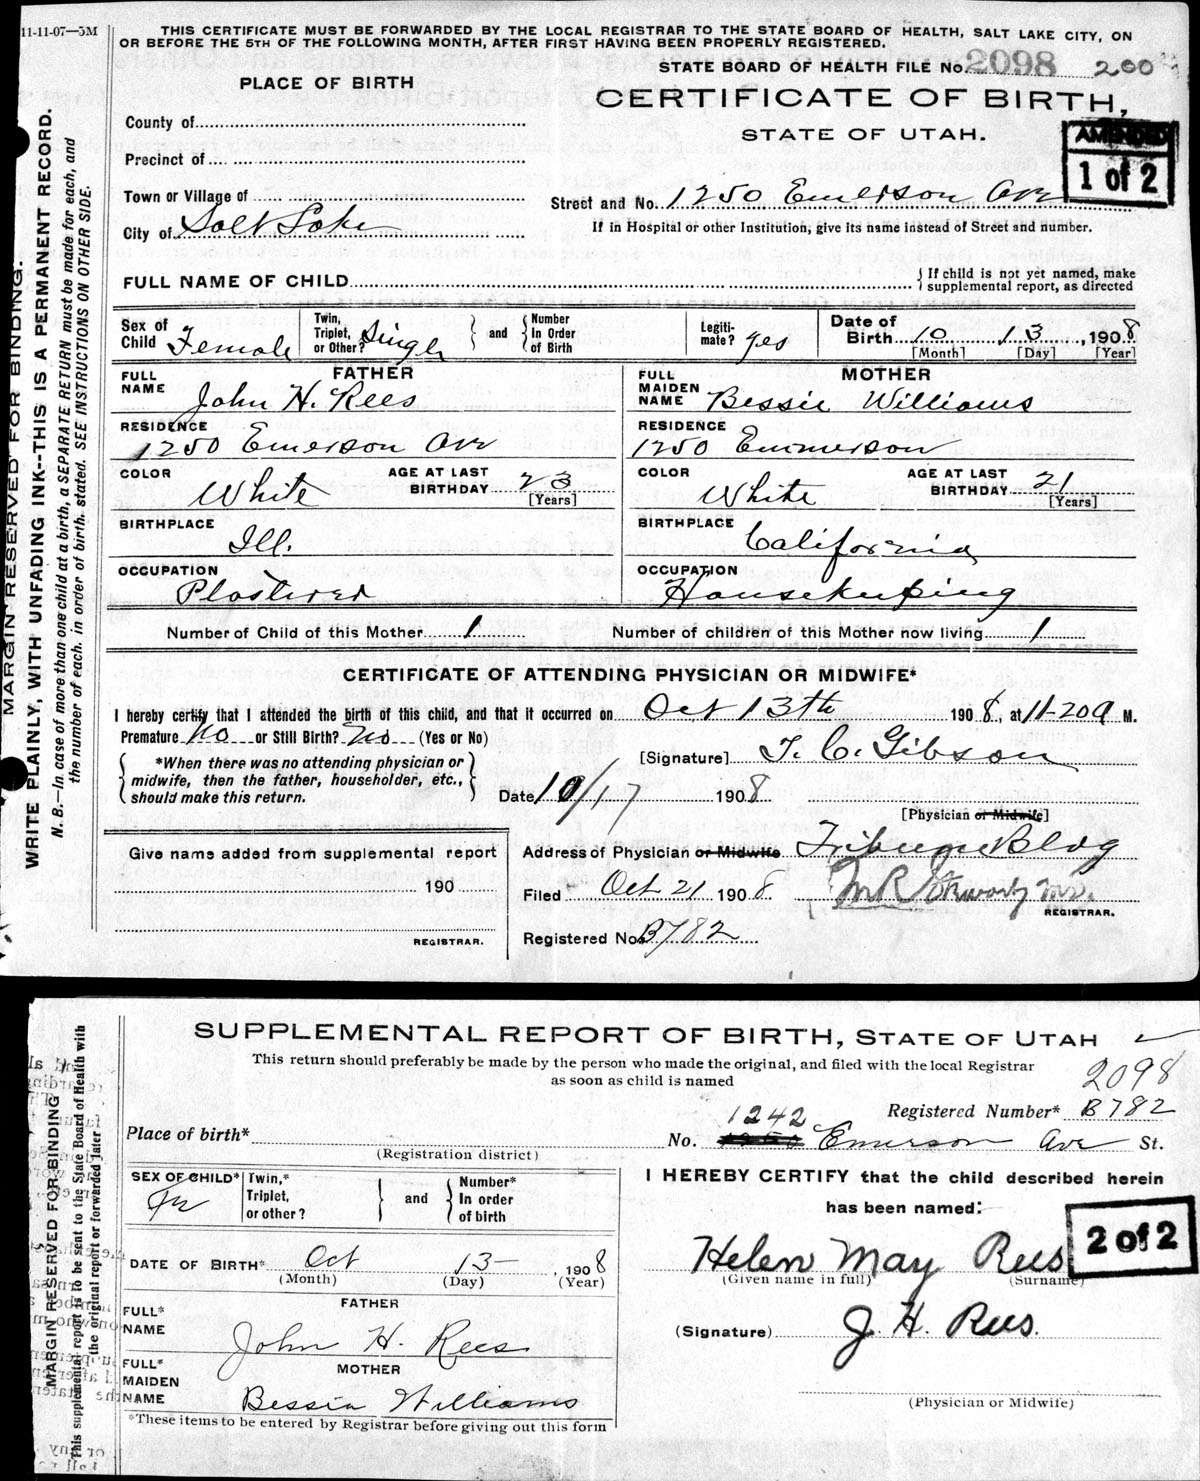 11-11-07—5M
THIS CERTIFICATE MUST BE FORWARDED BY THE LOCAL REGISTRAR TO THE STATE BOARD OF HEALTH, SALT LAKE CITY, ON
OR BEFORE THE 5TH OF THE FOLLOWING MONTH, AFTER FIRST HAVING BEEN PROPERLY REGISTERED.
STATE BOARD OF HEALTH FILE No. 2098 200
PLACE OF BIRTH
CERTIFICATE OF BIRTH,
STATE OF UTAH.
AMENDED
1 of 2
County of
Precinct of
Town or Village of
City of Salt Lake
Street and No. 1250 Emerson Ave
If in Hospital or other Institution, give its name instead of Street and number.
FULL NAME OF CHILD
{ If child is not yet named, make
supplemental report, as directed
Sex of Child Female
Twin, Triplet, or Other? Single
and
Number In Order of Birth
Legiti-mate? yes
Date of Birth 10 13, 1908
[Month] [Day] [Year]
FATHER
FULL NAME John H. Rees
RESIDENCE 1250 Emerson Ave
COLOR White
AGE AT LAST BIRTHDAY 23 [Years]
BIRTHPLACE Ill.
OCCUPATION Plasterer
MOTHER
FULL MAIDEN NAME Bessie Williams
RESIDENCE 1250 Emmerson
COLOR White
AGE AT LAST BIRTHDAY 21 [Years]
BIRTHPLACE California
OCCUPATION Housekeeping
Number of Child of this Mother 1
Number of children of this Mother now living 1
CERTIFICATE OF ATTENDING PHYSICIAN OR MIDWIFE*
I hereby certify that I attended the birth of this child, and that it occurred on Oct 13th 1908, at 11-20 a M.
Premature No or Still Birth? No (Yes or No)
*When there was no attending physician or
midwife, then the father, householder, etc.,
should make this return.
[Signature] T. C. Gibson
Date 10/17 1908
[Physician or Midwife]
Give name added from supplemental report
190
REGISTRAR.
Address of Physician or Midwife Tribune Bldg
Filed Oct 21 1908
REGISTRAR.
Registered No. B782
MARGIN RESERVED FOR BINDING.
WRITE PLAINLY, WITH UNFADING INK--THIS IS A PERMANENT RECORD.
N. B.—In case of more than one child at a birth, a SEPARATE RETURN must be made for each, and
the number of each, in order of birth, stated. SEE INSTRUCTIONS ON OTHER SIDE.
SUPPLEMENTAL REPORT OF BIRTH, STATE OF UTAH
This return should preferably be made by the person who made the original, and filed with the local Registrar
as soon as child is named
2098
Registered Number* B782
Place of birth*
(Registration district)
1242
No. 1250 Emerson Ave St.
SEX OF CHILD*
Twin,* Triplet, or other?
and
Number* In order of birth
I HEREBY CERTIFY that the child described herein
has been named:
2 of 2
DATE OF BIRTH* Oct 13, 1908
(Month) (Day) (Year)
Helen May Rees
(Given name in full) (Surname)
FATHER
FULL* NAME John H. Rees
(Signature) J. H. Rees.
MOTHER
FULL* MAIDEN NAME Bessie Williams
(Physician or Midwife)
*These items to be entered by Registrar before giving out this form
MARGIN RESERVED FOR BINDING
This supplemental report is to be sent to the State Board of Health with
the original report or forwarded later